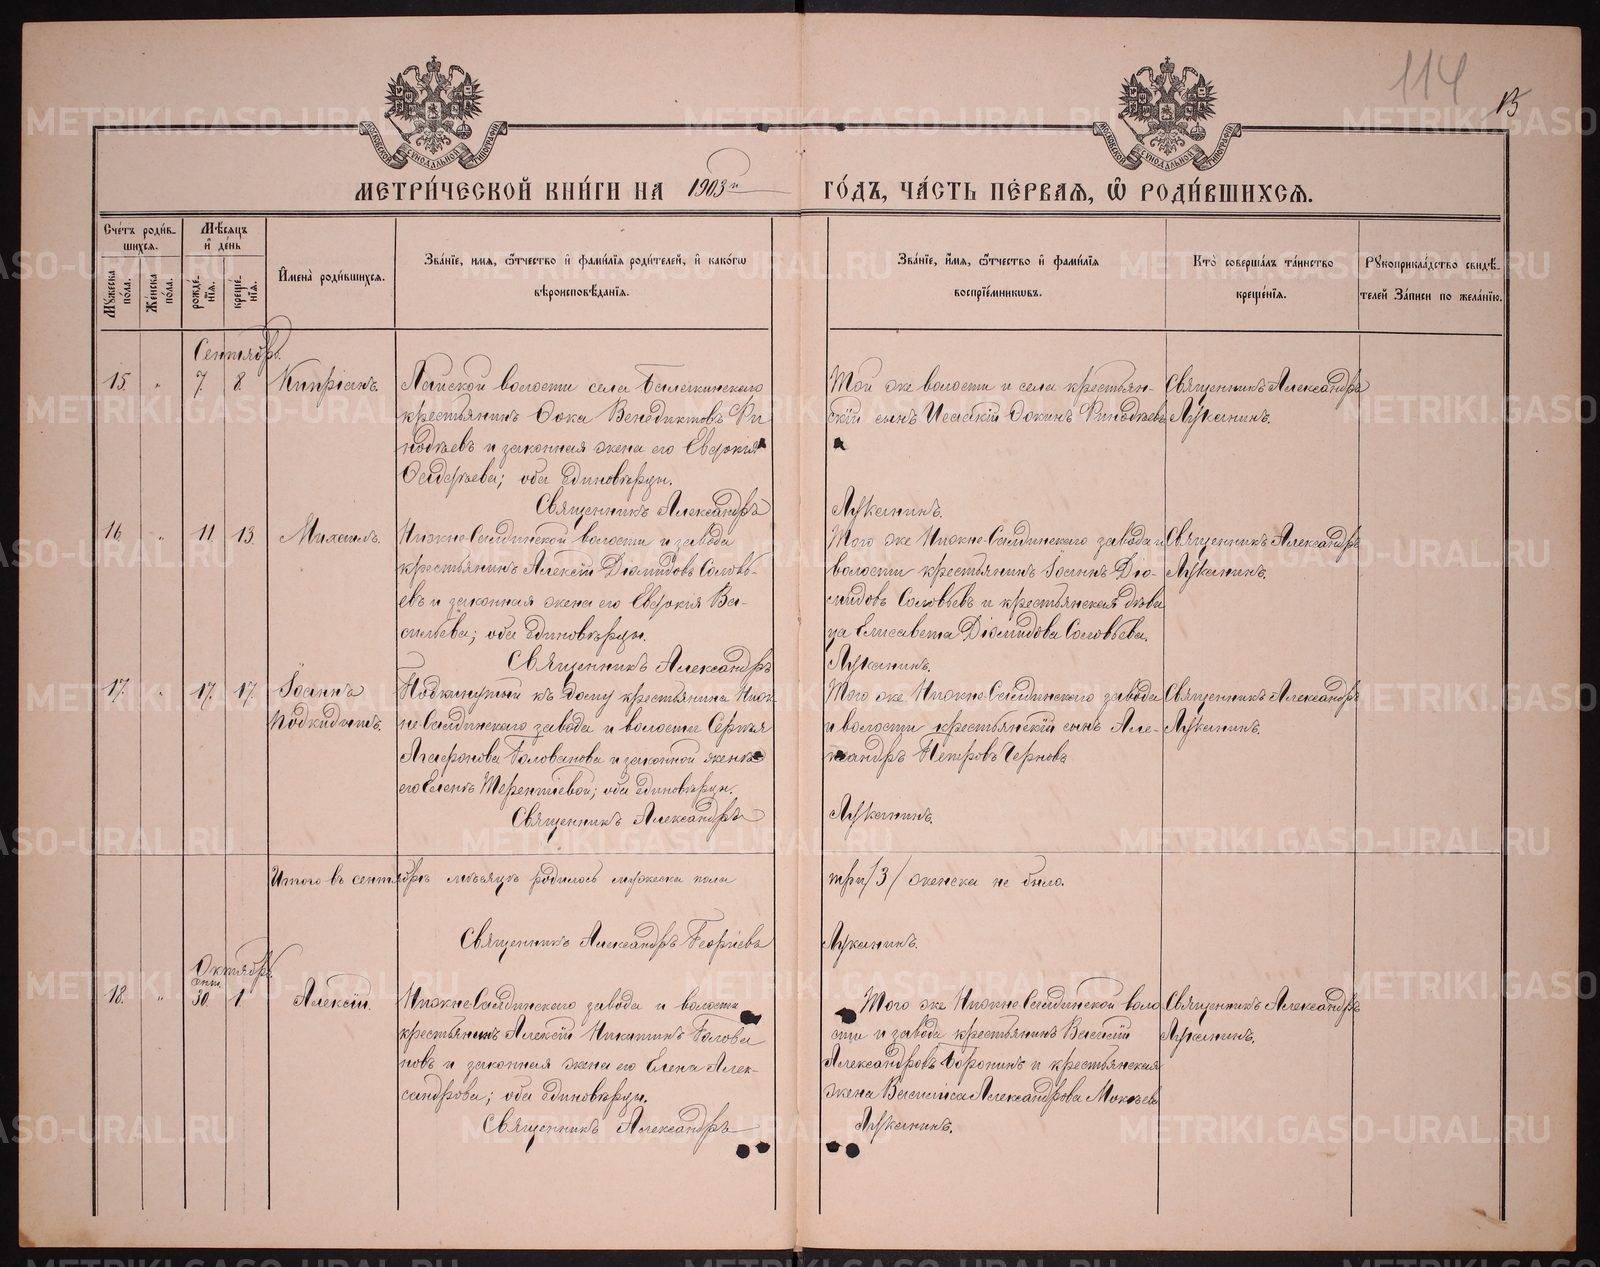 114
МЕТРИ́ЧЕСКОЙ КНИ́ГИ НА 1903й ГО́ДЪ, ЧА́СТЬ ПЕ́РВАЯ, Ѿ РОДИ́ВШИХСЯ.
Сче́тъ роди́вшихся.
Мужеска по́ла.
Же́нска по́ла.
Мѣ́сяцъ и́ де́нь
рожде́нїя.
креще́нїя.
И҆мена̀ роди́вшихся.
Зва́нїе, и́мя, ѻ҆́тчество и҆ фами́лїя роди́телей, и҆ како́гѡ
вѣроисповѣ́данїя.
Зва́нїе, и҆́мя, ѻ҆́тчество и҆ фами́лїя
воспрїе́мникѡвъ.
Кто̀ соверша́лъ та́инство
креще́нїя.
Рукоприкла́дство свидѣ́-
телей За́писи по жела́нїю.
Сентябрь.
15. " 7. 8. Кипріанъ.
Лайской волости села Балакинскаго
крестьянинъ Ѳока Венедиктовъ
и законная жена его Евдокія
; оба единовѣрцы.
Священникъ Александръ Луканинъ.
Той же волости и села крестьян-
скій сынъ Исаакій Ѳокинъ
Священникъ Александръ
Луканинъ.
16. " 11. 13. Михаилъ.
Нижне-Салдинской волости и завода
крестьянинъ Алексій Діомидовъ Соловь-
евъ и законная жена его Евдокія Ва-
сильева; оба единовѣрцы.
Священникъ Александръ Луканинъ.
Того же Нижне-Салдинскаго завода и
волости крестьянинъ Іоаннъ Діо-
мидовъ Соловьевъ и крестьянская дѣви
ца Елисавета Діомидова Соловьева.
Священникъ Александръ
Луканинъ.
17. " 17. 17. Іоаннъ
Подкидышъ.
Подкинутый къ дому крестьянина Ниж-
не-Салдинскаго завода и волости Сергѣя
Агафонова Голованова и законной женѣ
его Еленѣ Терентіевой; оба единовѣрцы.
Священникъ Александръ Луканинъ.
Того же Нижне-Салдинскаго завода
и волости крестьянскій сынъ Але-
ксандръ Петровъ Черновъ
Священникъ Александръ
Луканинъ.
Итого въ сентябрѣ мѣсяцѣ родилось мужеска пола три /3/ женска не было.
Священникъ Александръ Георгіевъ Луканинъ.
Октябрь.
18. " 30. 1. Алексій.
Нижне-Салдинскаго завода и волости
крестьянинъ Алексій Никитинъ Голова
новъ и законная жена его Елена Алек-
сандрова; оба единовѣрцы.
Священникъ Александръ Луканинъ.
Того же Нижне-Салдинской воло
сти и завода крестьянинъ Василій
Александровъ Воронинъ и крестьянская
жена Василиса Александрова Мокѣева
Священникъ Александръ
Луканинъ.
METRIKI.GASO-URAL.RU